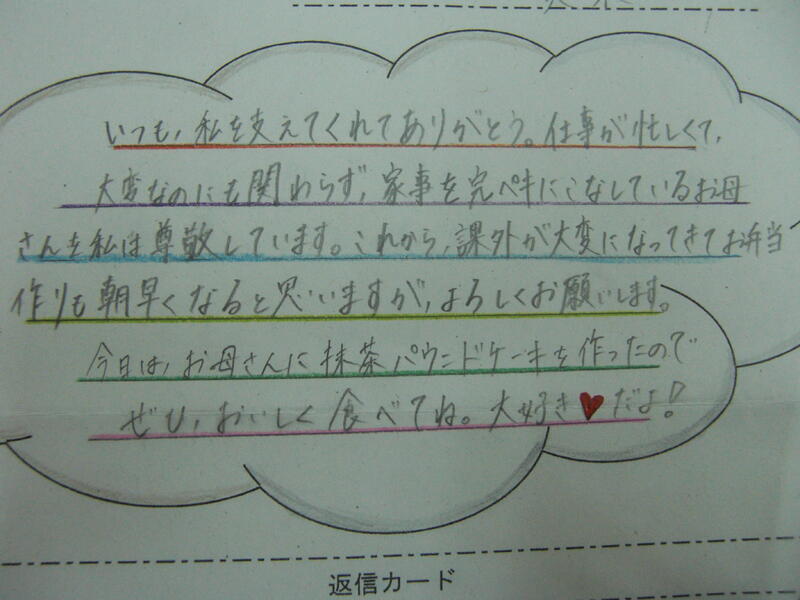 いつも、私を支えてくれてありがとう。仕事が忙しくて、
大変なのにも関わらず、家事を完ペキにこなしているお母
さんを私は尊敬しています。これから、課外が大変になってきてお弁当
作りも朝早くなると思いますが、よろしくお願いします。
今日は、お母さんに抹茶パウンドケーキを作ったので
ぜひ、おいしく食べてね。大好き♥だよ!
返信カード